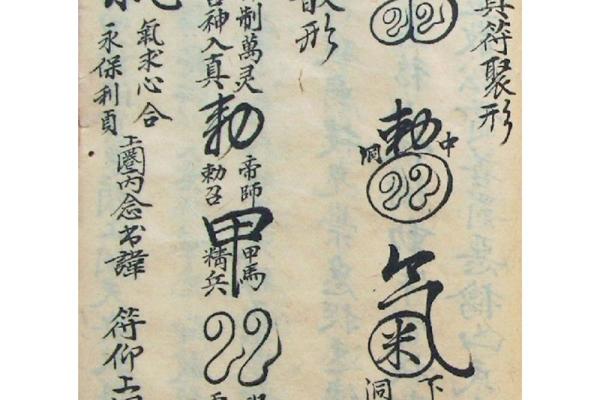 真符聚形
勅
中
洞
氣
下
洞
散形
制萬灵
召神入真
勅
帝師
勅召
甲
甲馬
精兵
氣求心合
永保利貞
上圈内念书諱
符仰上